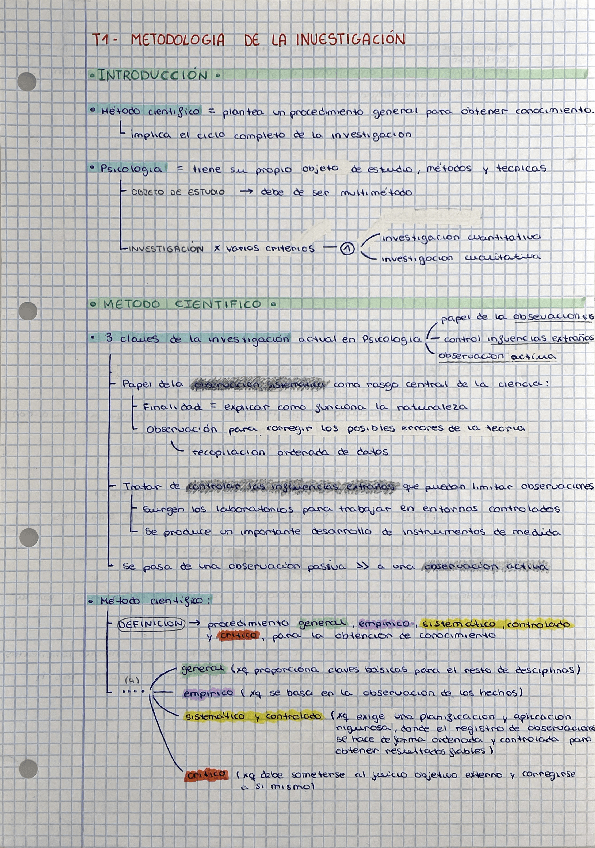 T1- METODOLOGIA DE LA INVESTIGACIÓN
• INTRODUCCIÓN •
• Método científico = plantea un procedimiento general para obtener conocimiento.
Implica el ciclo completo de la investigación
• Psicología = tiene su propio objeto de estudio, métodos y tecnicas
OBJETO DE ESTUDIO → debe de ser multimétodo
INVESTIGACIÓN x varios criterios — ①
investigación cuantitativa
investigación cualitativa
• METODO CIENTIFICO •
papel de la observación
• 3 claves de la investigación actual en Psicología
control influencias extrañas
observación activa
Papel de la observación sistemática como rasgo central de la ciencia:
Finalidad = explicar como funciona la naturaleza
Observación para corregir los posibles errores de la teoría
recopilación ordenada de datos
Tratar de controlar las influencias extrañas que puedan limitar observaciones
Surgen los laboratorios para trabajar en entornos controlados
Se produce un importante desarrollo de instrumentos de medida
Se pasa de una observación pasiva >> a una observación activa
• Metodo científico:
DEFINICION → procedimiento general, empirico, sistemático, controlado
y critico, para la obtención de conocimiento
(4)
general (xq proporciona claves básicas para el resto de desciplinas)
empirico (xq se basa en la observación de los hechos)
sistemático y controlado (xq exige una planificación y aplicación
rigurosa, donde el registro de observaciones
se hace de forma ordenada y controlada para
obtener resultados fiables)
critico (xq debe someterse al juicio objetivo externo y corregirse
a si mismo)